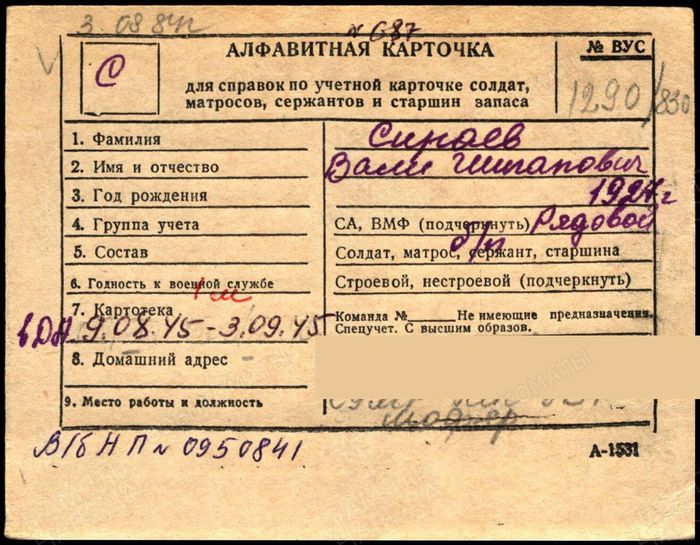 3.08.84г
№ 687
АЛФАВИТНАЯ КАРТОЧКА
№ ВУС
С
для справок по учетной карточке солдат,
матросов, сержантов и старшин запаса
1290/830
1. Фамилия
Сираев
2. Имя и отчество
Вали
3. Год рождения
1927 г
4. Группа учета
СА, ВМФ (подчеркнуть) Рядовой
5. Состав
б/п
Солдат, матрос, сержант, старшина
6. Годность к военной службе
Строевой, нестроевой (подчеркнуть)
7. Картотека
Команда № Не имеющие предназначения.
9.08.45-3.09.45
Спецучет. С высшим образов.
8. Домашний адрес
9. Место работы и должность
шофер
В/б НП № 0950841
А-1531